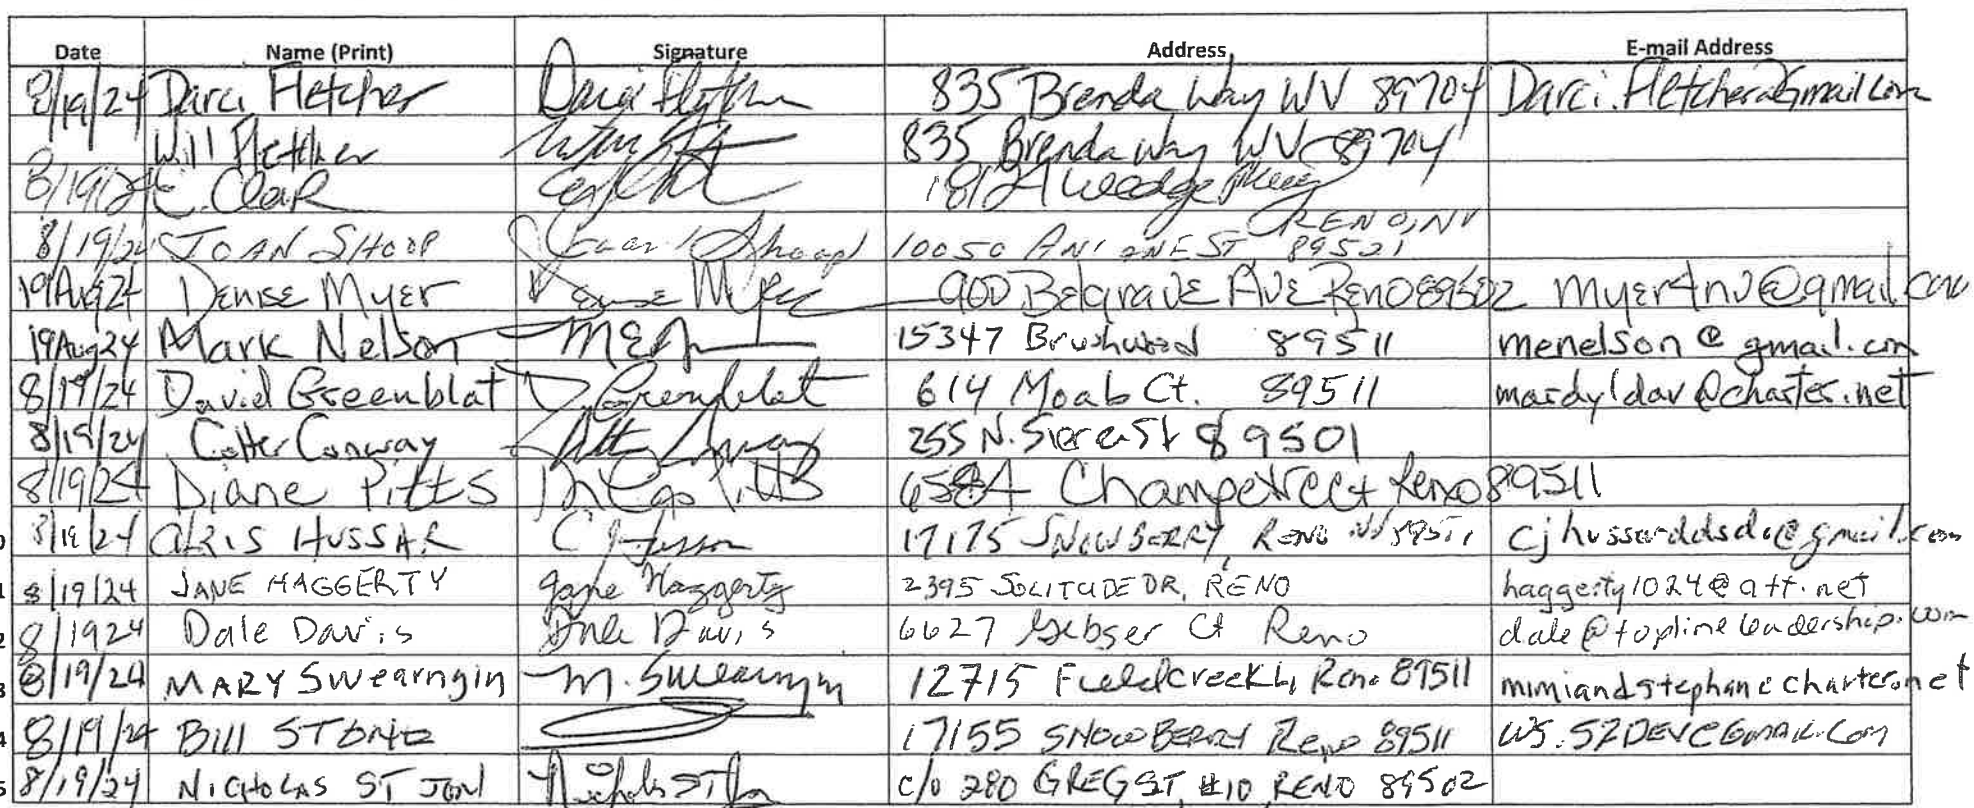 Date Name (Print) Signature Address E-mail Address
8/19/24 Darci Fletcher Darci Fletcher 835 Brenda Way WV 89704 Darci.Fletcher@Gmail.com
Will Fletcher 835 Brenda Way WV 89704
8/19/24 C. Clark 18124 Wedge Pkwy
RENO, NV
8/19/24 JOAN SHOOP Joan Shoop 10050 ST 89521
19Aug24 Denise Myer Denise Myer 900 Belgrave Ave Reno 89502 myer4nv@gmail.com
19Aug24 Mark Nelson 15347 Brushwood 89511 menelson@gmail.com
8/19/24 David Greenblat D Greenblat 614 Moab Ct. 89511 mardyldav@charter.net
8/19/24 Cotter Conway 255 N. Sierra St 89501
8/19/24 Diane Pitts Pitts Reno 89511
8/19/24 CHRIS HUSSAR 17175 SNOWBERRY, RENO NV 89511
1 8/19/24 JANE HAGGERTY Jane Haggerty 2395 SOLITUDE DR, RENO haggerty1024@att.net
2 8/1924 Dale Davis Dale Davis 6627 Gebser Ct Reno dale@toplineleadership.com
3 8/19/24 MARY Swearngin M. Swearngin 12715 Fieldcreek Ln Reno 89511 mimiandstephan@charter.net
4 8/19/24 Bill STONE 17155 SNOWBERRY Reno 89511
5 8/19/24 NICHOLAS ST JON Nicholas St Jon c/o 280 GREG ST, #10, RENO 89502